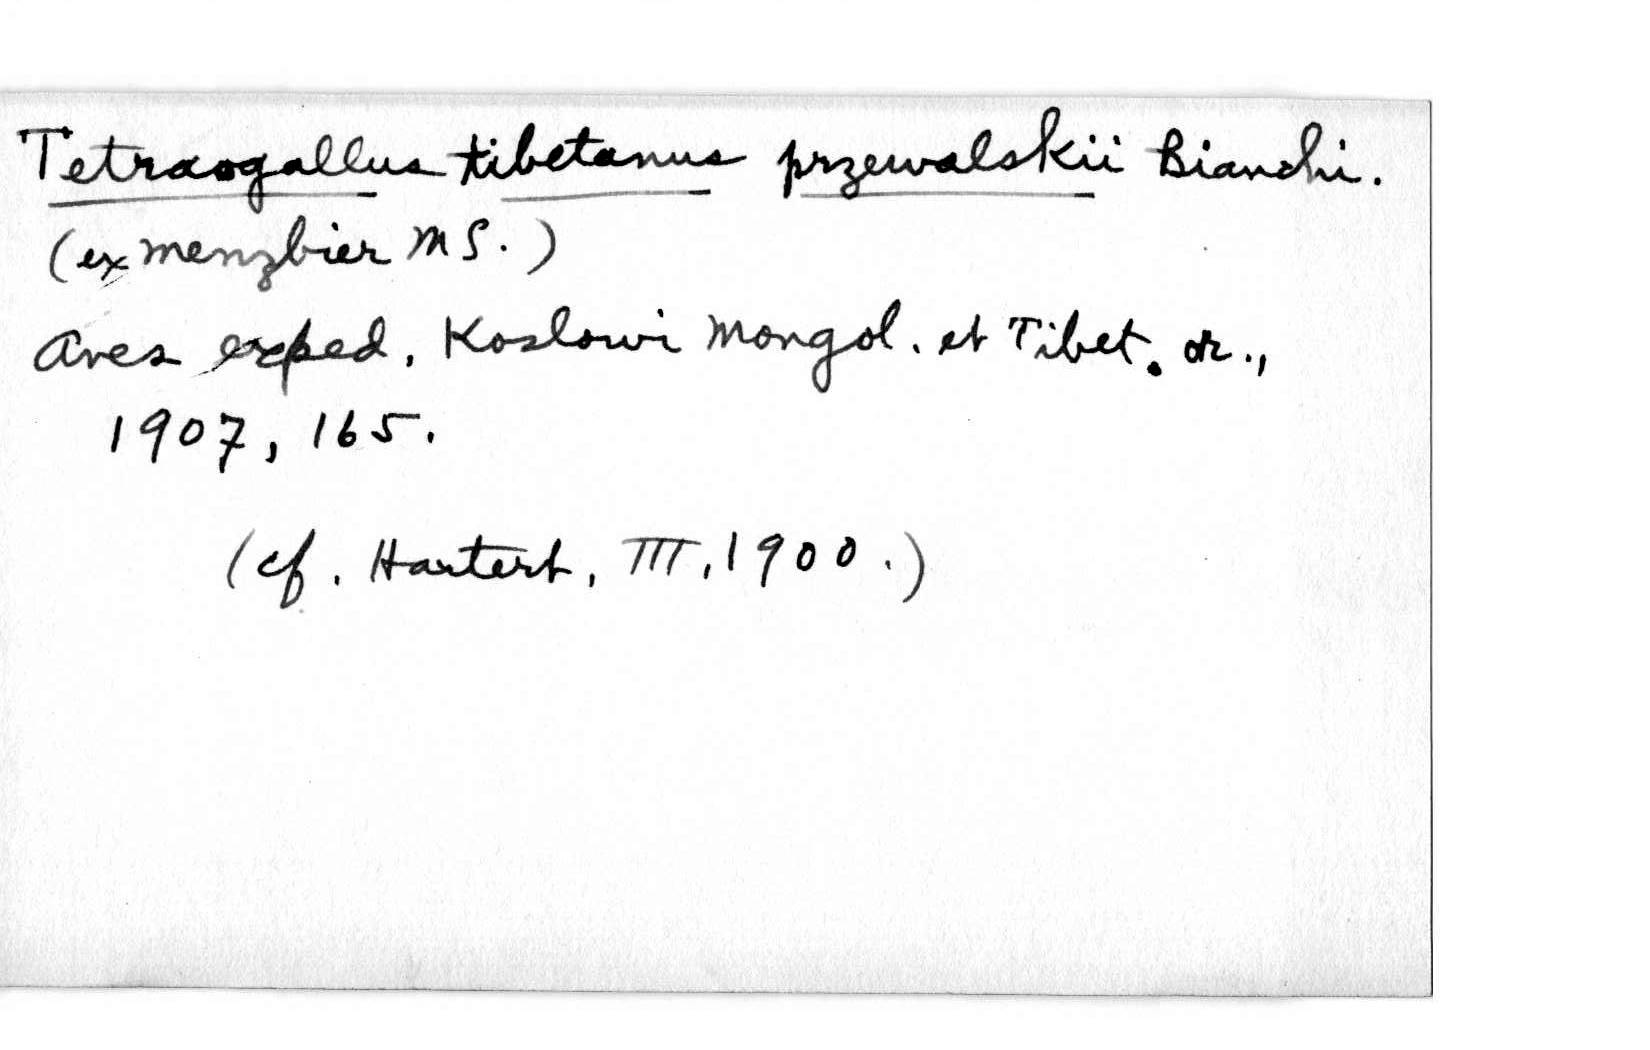 Tetraogallus tibetanus przewalskii Bianchi.
(ex Menzbier MS.)
Aves exped. Koslowi Mongol. et Tibet. or.,
1907, 165.
(cf. Hartert, III, 1900.)